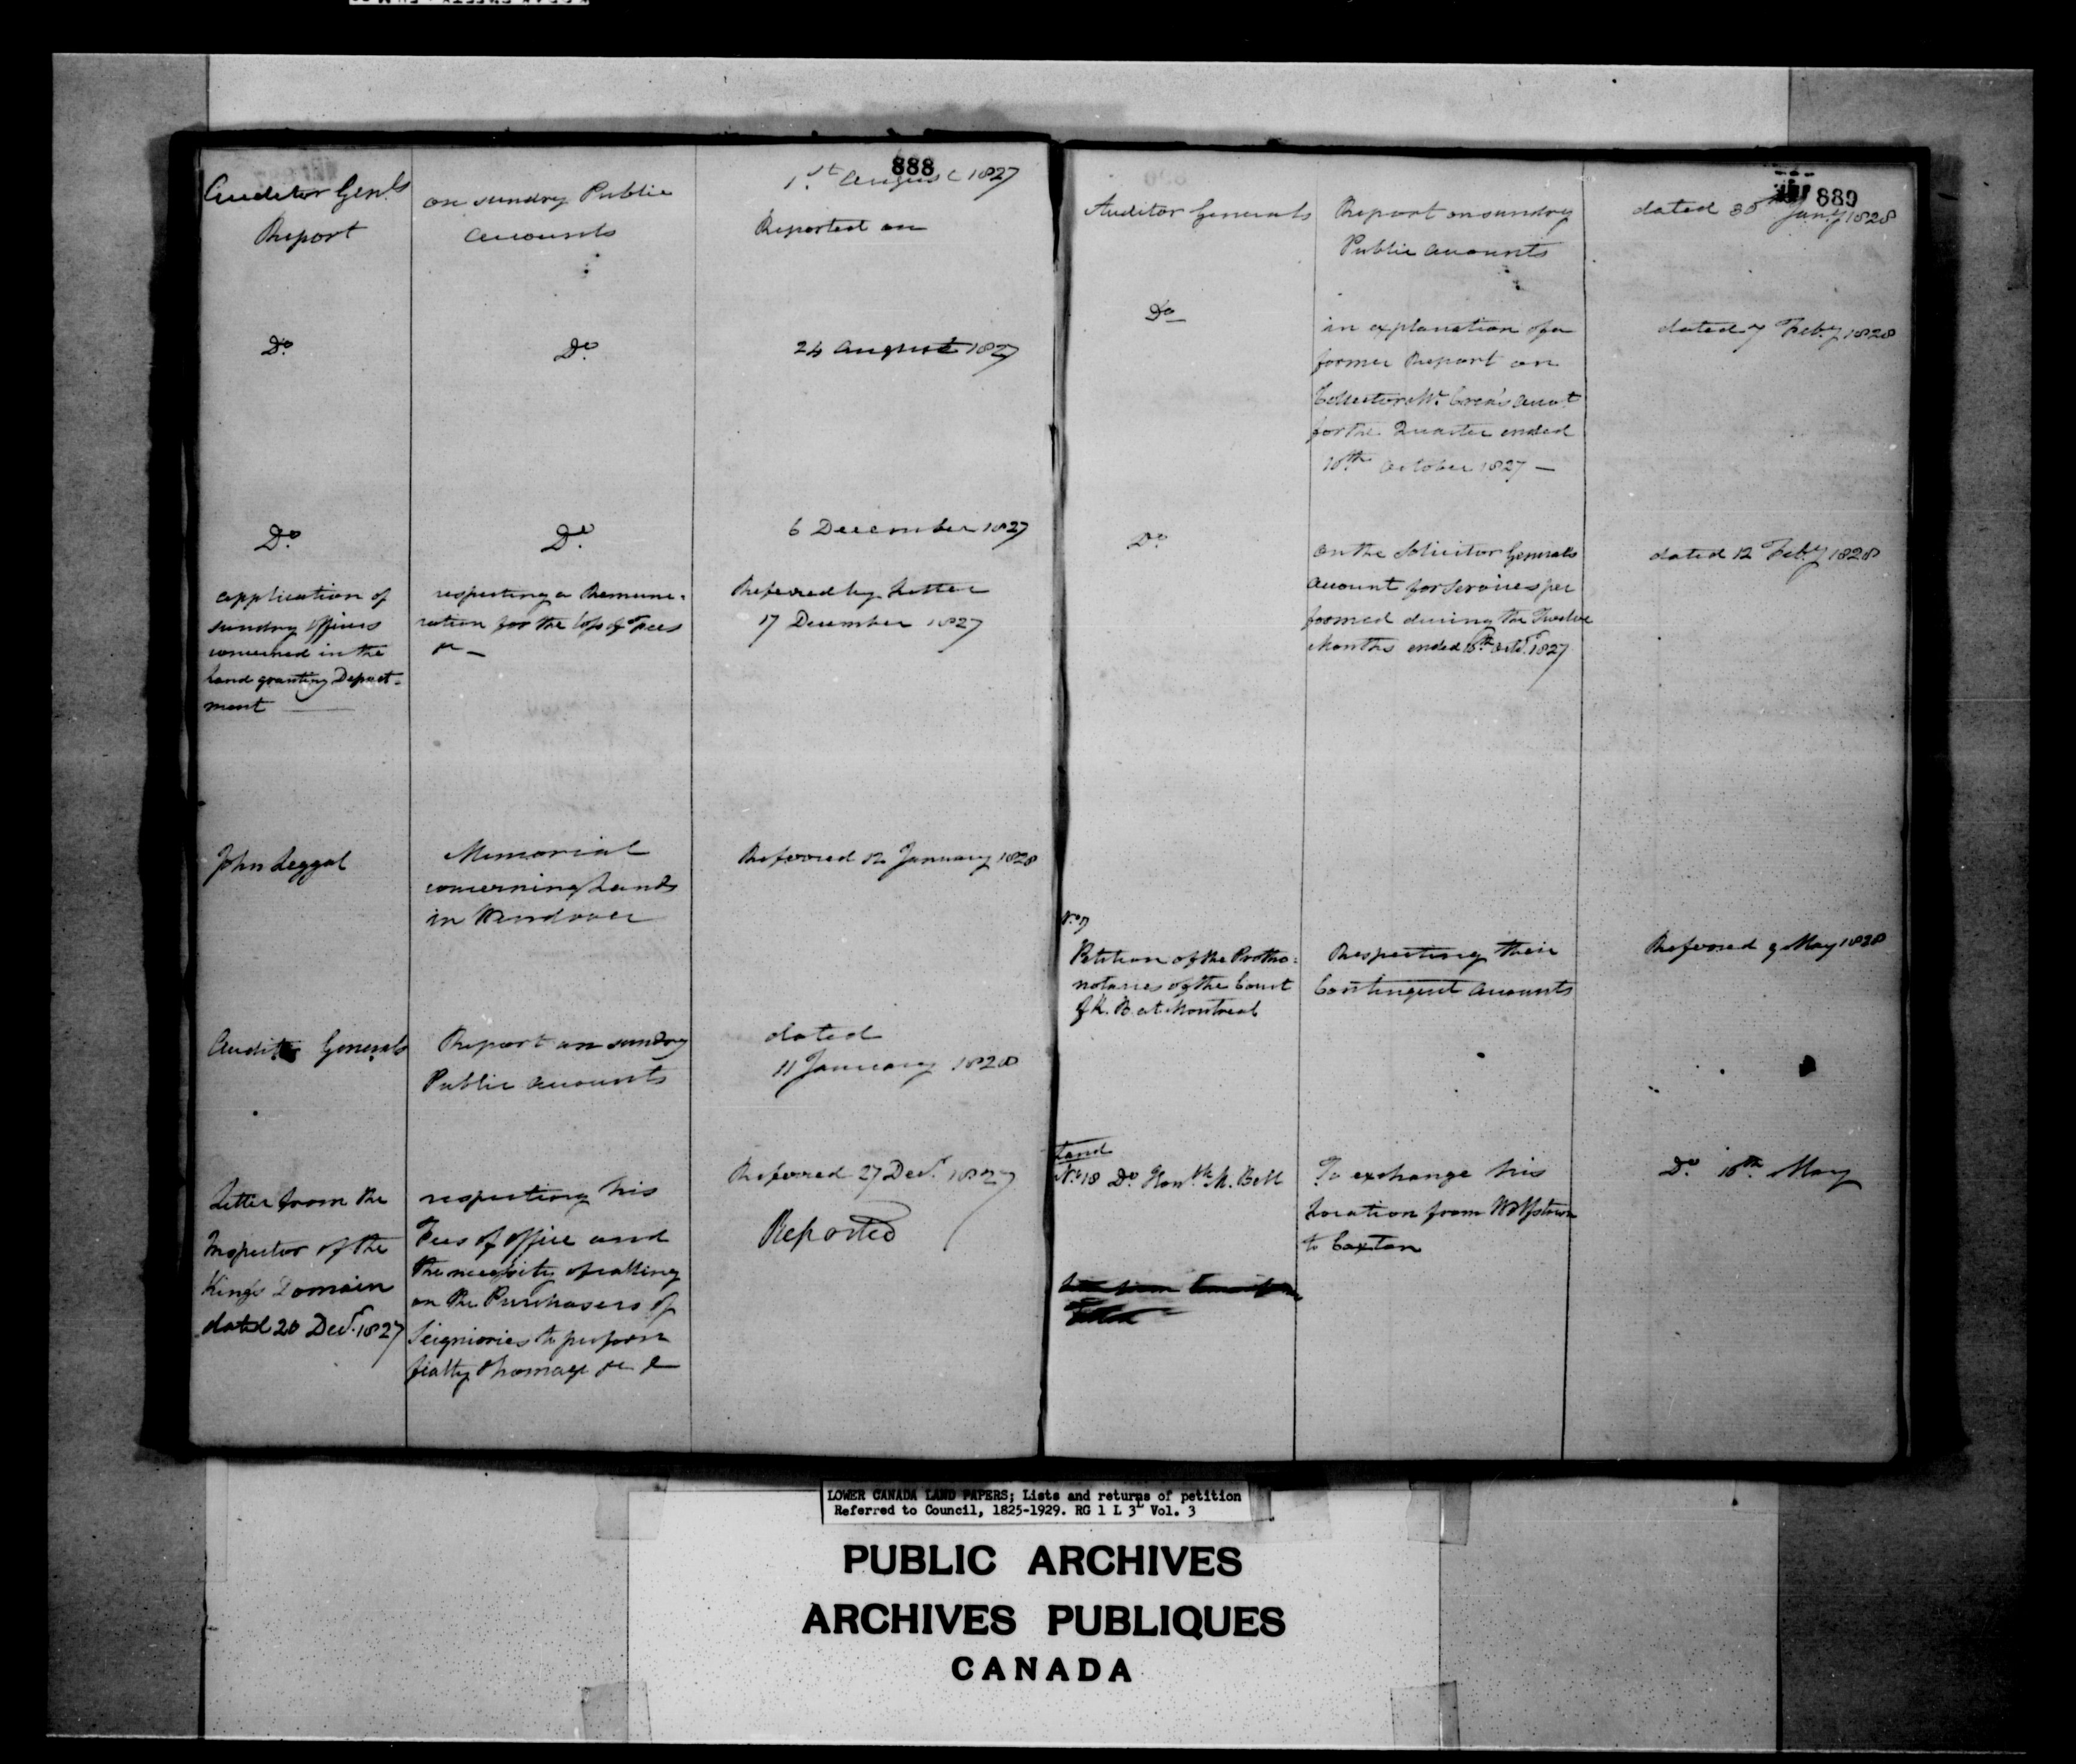 888
Auditor Genls
Report
on sundry Public
accounts
1st August 1827
Reported on
Do
Do
24 August 1827
Do
Do
6 December 1827
application of
sundry officers
concerned in the
Land granting Depart-
ment
respecting a Remune-
ration for the loss of Fees
&c —
Referred by Letter
17 December 1827
John Leggat
Memorial
concerning Lands
in Wendover
Referred 12 January 1828
Auditor Generals
Report on sundry
Public accounts
dated
11 January 1828
Letter from the
Inspector of the
Kings Domain
dated 20 Decr. 1827
respecting his
Fees of office and
the necessity of calling
on the Purchasers of
Seigniories to perform
fealty & homage &c &c
Referred 27 Decr. 1827
Reported
889
Auditor Generals
Report on sundry
Public accounts
dated 30th Jany 1828
Do
in explanation of a
former Report on
Collector Mc Crea's Accot
for the Quarter ended
10th October 1827 —
dated 7 Feby 1828
Do
on the Solicitor Generals
account for services per
formed during the Twelve
Months ended 10th Octr. 1827
dated 12 Feby 1828
No 7
Petition of the Protho-
notaries of the Court
of K. B. at Montreal
Respecting their
Contingent accounts
Referred 9 May 1828
Land
No 18 Do Honble M. Bell
To exchange his
Location from Wolfstown
to Caxton
Do 10th May
LOWER CANADA LAND PAPERS; Lists and returns of petition
Referred to Council, 1825-1929. RG 1 L 3L Vol. 3
PUBLIC ARCHIVES
ARCHIVES PUBLIQUES
CANADA